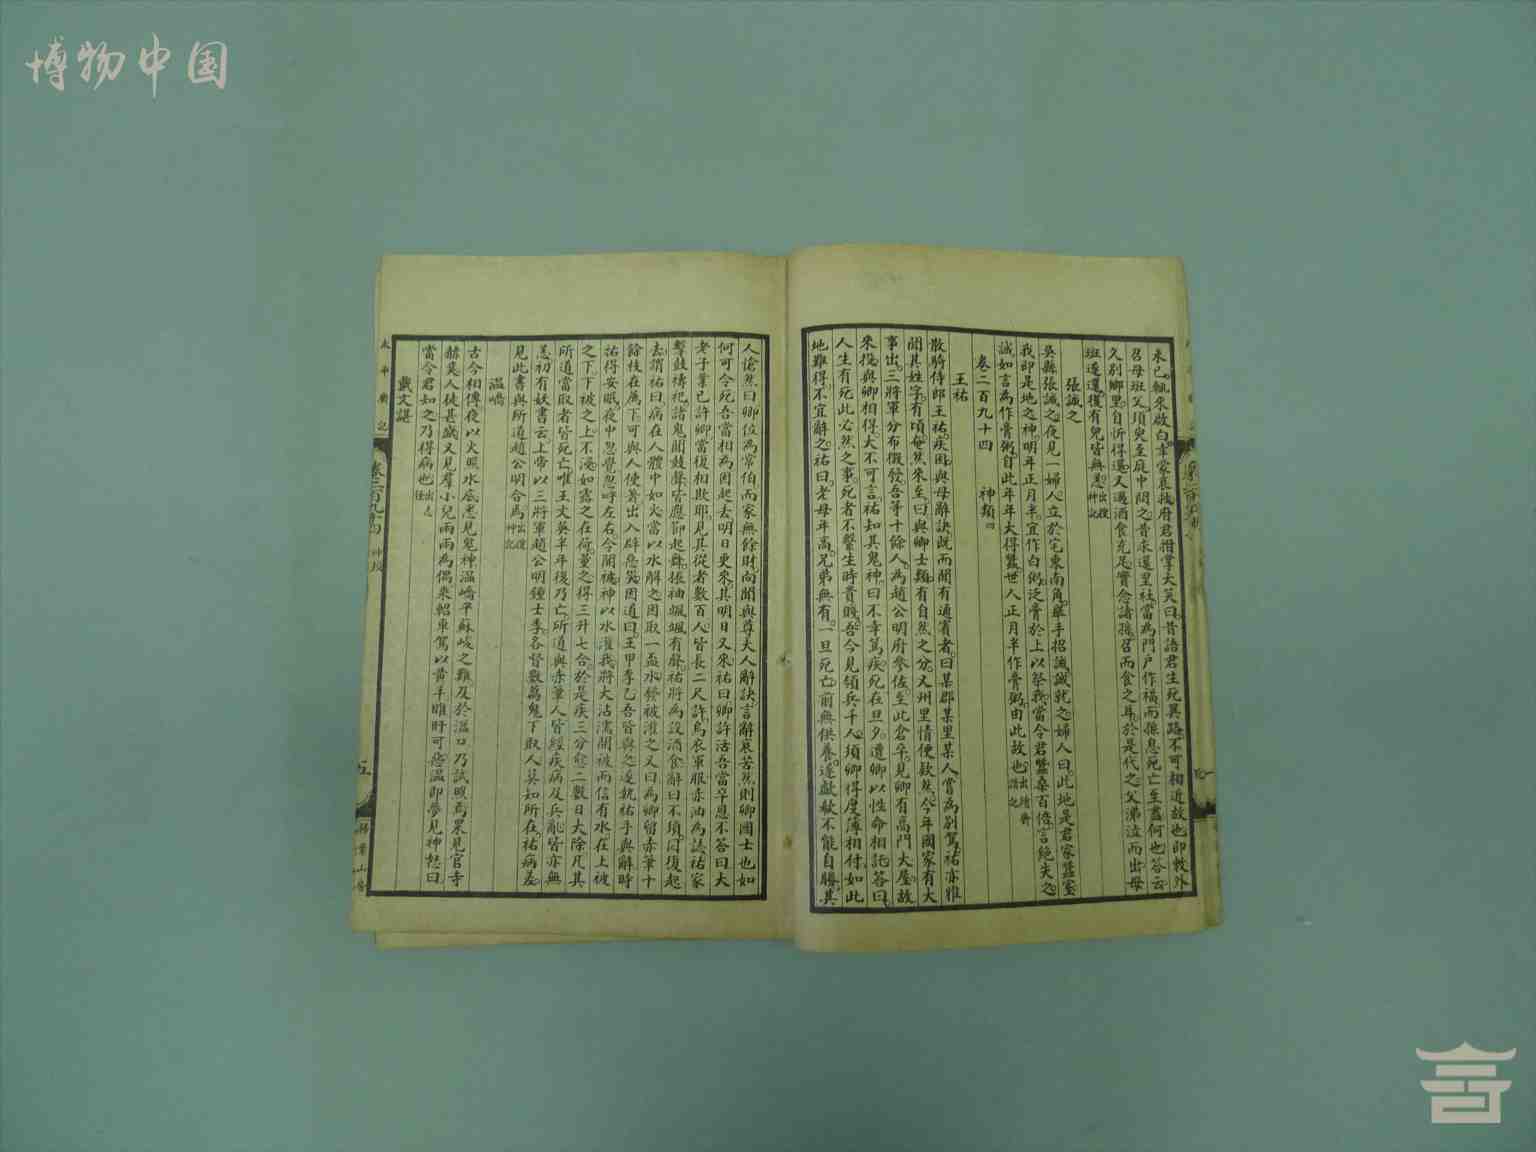 博物中国
未已輒來啟白幸蒙哀救府君拊掌大笑曰昔語君生死異路不可相近故也即敕外
召母班父須臾至庭中問之昔求還里社當為門戶作福而孫息死亡至盡何也答云
久別鄉里自忻得還又遇酒食充足實念諸孫召而食之耳於是代之父涕泣而出母
班遂還後有兒皆無恙出搜神記
張誠之
吳縣張誠之夜見一婦人立於宅東南角舉手招誠誠就之婦人曰此地是君家蠶室
我即是地之神明年正月半宜作白粥泛膏於上以祭我當令君蠶桑百倍言絕失之
誠如言為作膏粥自此年年大得蠶世人正月半作膏粥由此故也出續齊諧記
卷二百九十四 神類四
王祐
散騎侍郎王祐疾困與母辭訣既而聞有通賓者曰某郡某里某人嘗為別駕祐亦雅
聞其姓字有頃奄然來至曰與卿士類有自然之分又州里情便款然今年國家有大
事出三將軍分布徵發吾等十餘人為趙公明府參佐至此倉卒見卿有高門大屋故
來投與卿相得大不可言祐知其鬼神曰不幸篤疾死在旦夕遭卿以性命相託答曰
人生有死此必然之事死者不繫生時貴賤吾今見領兵千人須卿得度簿相付如此
地難得不宜辭之祐曰老母年高兄弟無有一旦死亡前無供養遂歔欷不能自勝其
人愴然曰卿位為常伯而家無餘財向聞與尊夫人辭訣言辭哀苦然則卿國士也如
何可令死吾當相為因起去明日更來其明日又來祐曰卿許活吾當卒恩不答曰大
老子業已許卿當復相欺耶見其從者數百人皆長二尺許烏衣軍服赤油為誌祐家
擊鼓禱祀諸鬼聞鼓聲皆應節起舞振袖颯颯有聲祐將為設酒食辭曰不須因復起
去謂祐曰病在人體中如火當以水解之因取一盃水發被灌之又曰為卿留赤筆十
餘枝在薦下可與人使著出入辟惡災因道曰王甲李乙吾皆與之遂執祐手與辭時
祐得安眠夜中忽覺忽呼左右令開被神以水灌我將大沾濡開被而信有水在上被
之下下被之上不浸如露之在荷量之得三升七合於是疾三分愈二數日大除凡其
所道當取者皆死亡唯王文英半年後乃亡所道與赤筆人皆經疾病及兵亂皆亦無
恙初有妖書云上帝以三將軍趙公明鍾士季各督數萬鬼下取人莫知所在祐病差
見此書與所道趙公明合焉出搜神記
溫嶠
古今相傳夜以火照水底悉見鬼神溫嶠平蘇峻之難及於湓口乃試照焉果見官寺
赫奕人徒甚盛又見羣小兒兩兩為偶乘軺車駕以黃羊睢盱可惡溫即夢見神怒曰
當令君知之乃得病也出志怪
戴文諶
太平廣記 卷二百九十四 神 五 掃葉山房